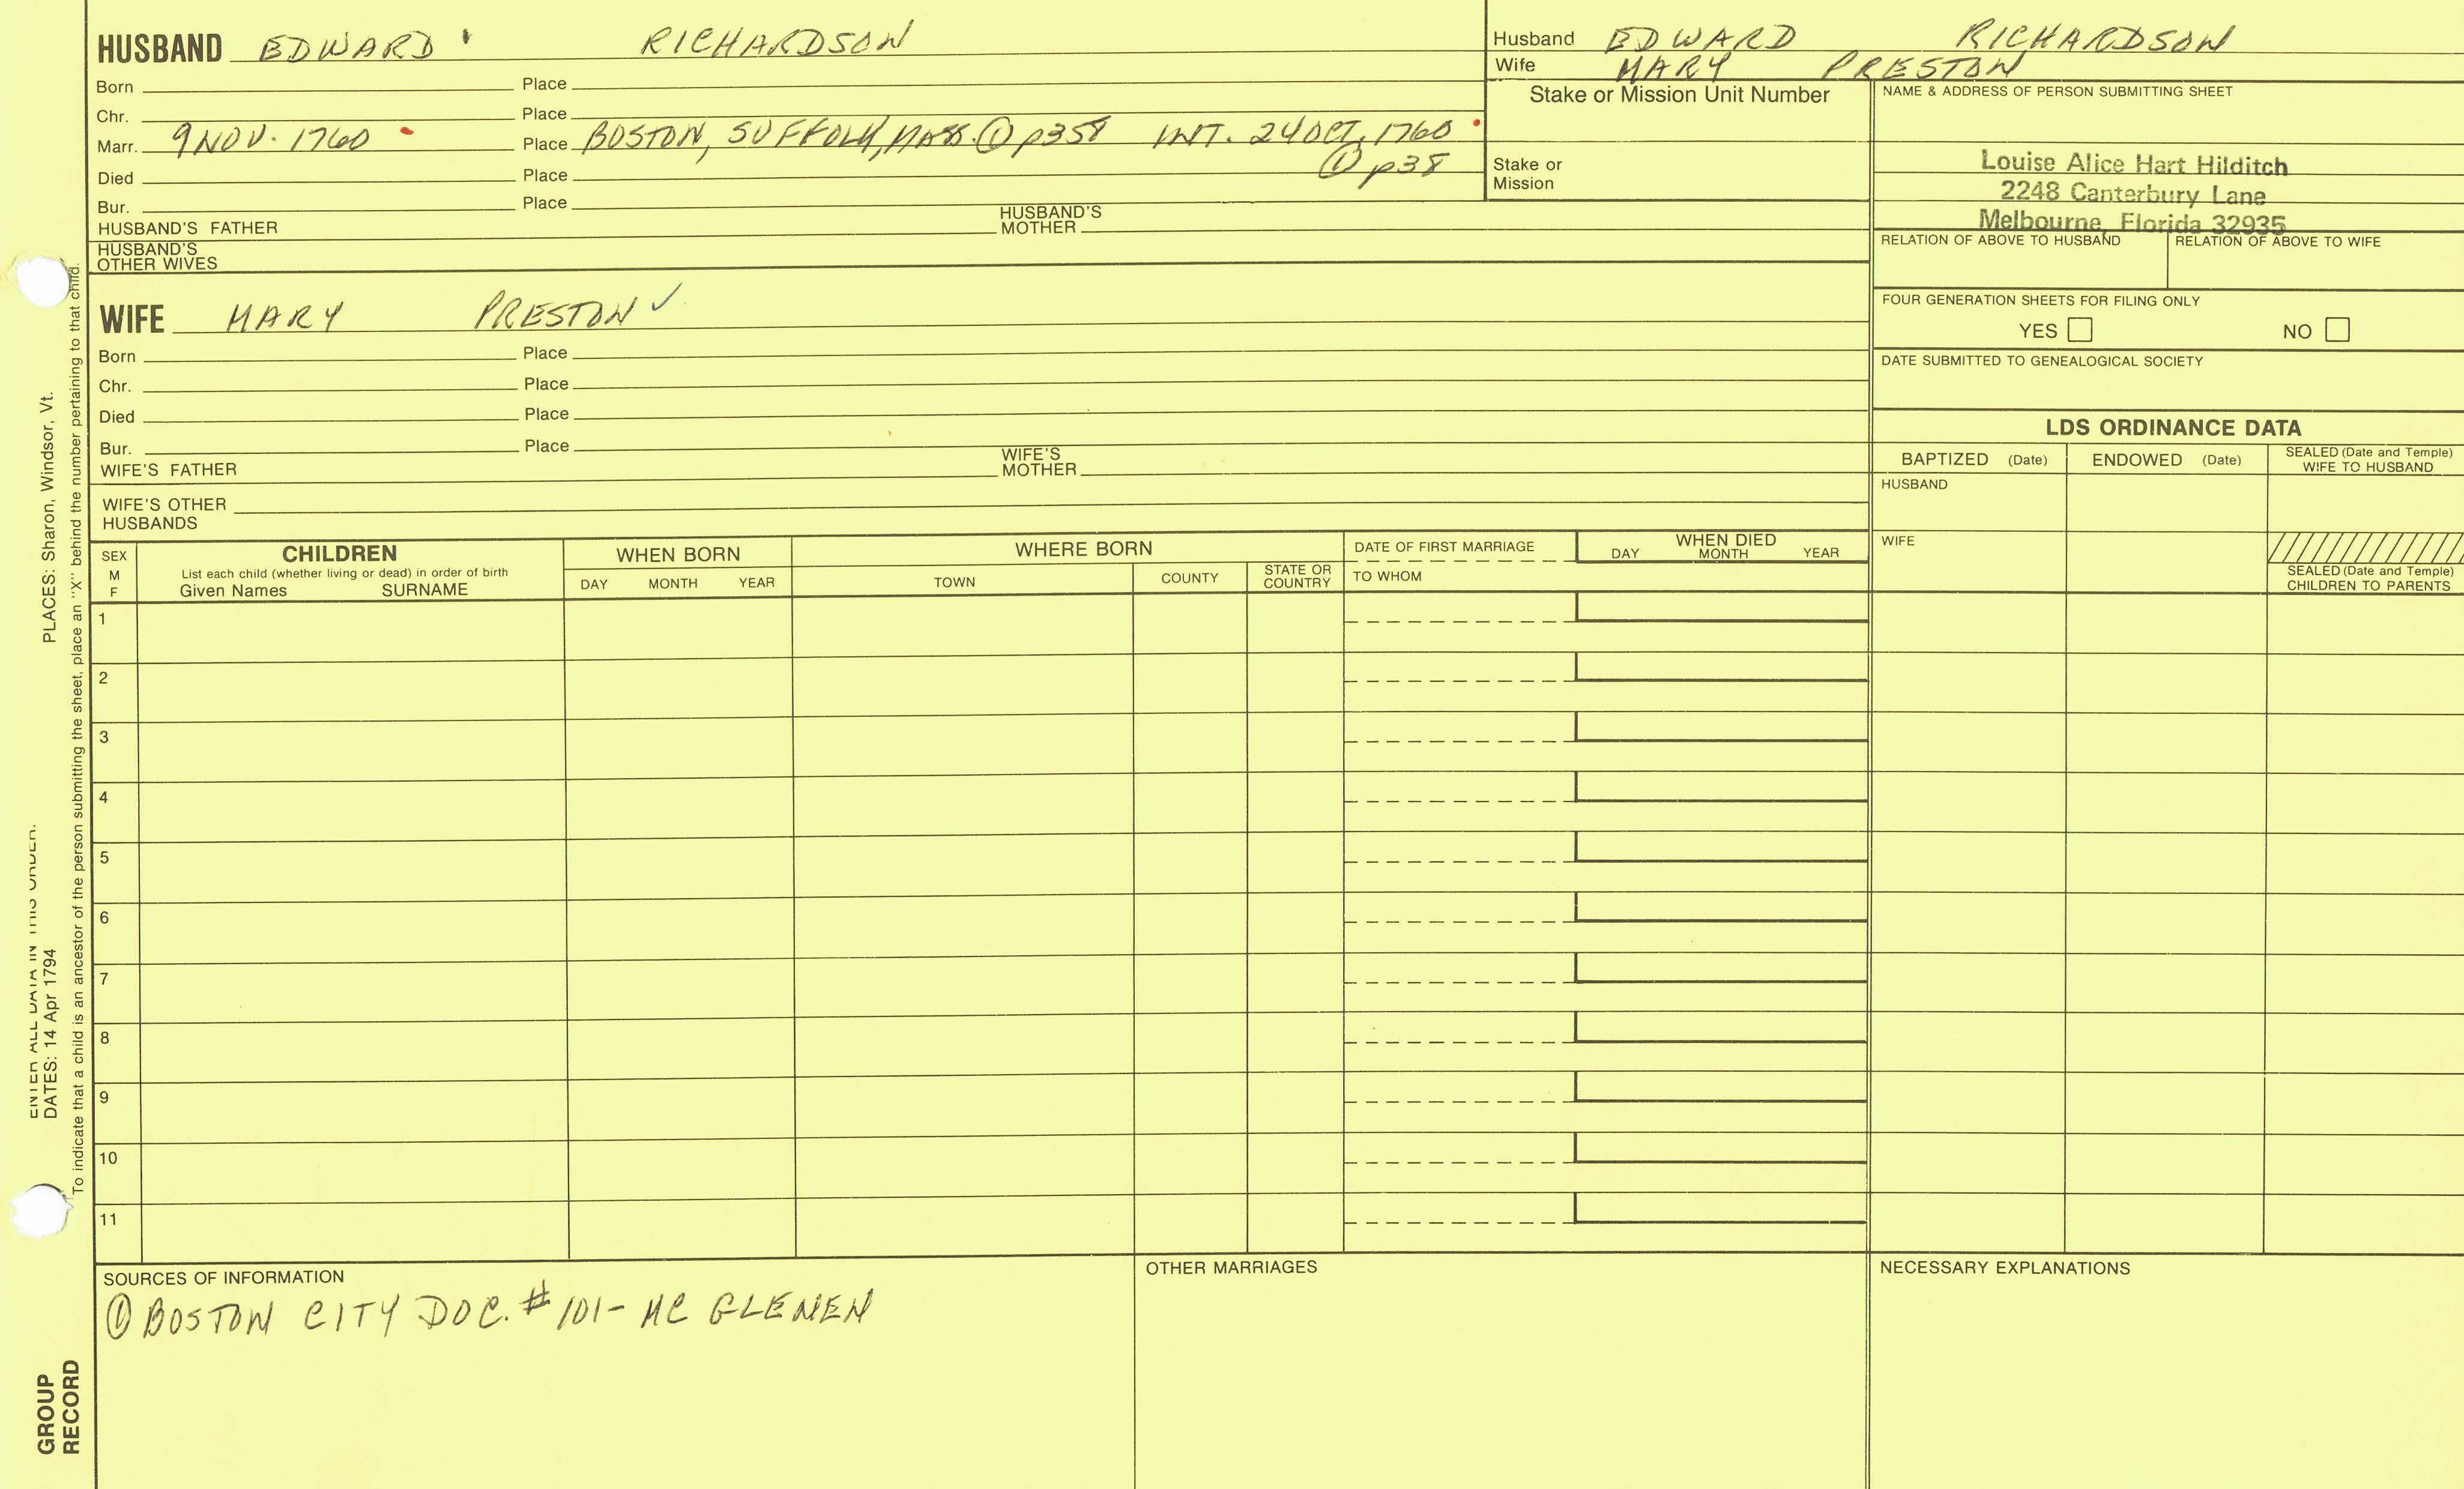 HUSBAND EDWARD RICHARDSON
Born Place
Chr. Place
Marr. 9 NOV. 1760 Place BOSTON, SUFFOLK, MASS. ① p358 INT. 24 OCT. 1760
① p38
Died Place
Bur. Place
HUSBAND'S FATHER HUSBAND'S MOTHER
HUSBAND'S
OTHER WIVES
Husband EDWARD RICHARDSON
Wife MARY PRESTON
Stake or Mission Unit Number
Stake or
Mission
NAME & ADDRESS OF PERSON SUBMITTING SHEET
Louise Alice Hart Hilditch
2248 Canterbury Lane
Melbourne, Florida 32935
RELATION OF ABOVE TO HUSBAND RELATION OF ABOVE TO WIFE
WIFE MARY PRESTON ✓
Born Place
Chr. Place
Died Place
Bur. Place
WIFE'S FATHER WIFE'S MOTHER
WIFE'S OTHER
HUSBANDS
FOUR GENERATION SHEETS FOR FILING ONLY
YES NO
DATE SUBMITTED TO GENEALOGICAL SOCIETY
LDS ORDINANCE DATA
BAPTIZED (Date) ENDOWED (Date) SEALED (Date and Temple)
WIFE TO HUSBAND
HUSBAND
WIFE
SEALED (Date and Temple)
CHILDREN TO PARENTS
SEX
M
F
CHILDREN
List each child (whether living or dead) in order of birth
Given Names SURNAME
WHEN BORN
DAY MONTH YEAR
WHERE BORN
TOWN COUNTY STATE OR COUNTRY
DATE OF FIRST MARRIAGE
TO WHOM
WHEN DIED
DAY MONTH YEAR
1
2
3
4
5
6
7
8
9
10
11
SOURCES OF INFORMATION
① BOSTON CITY DOC. # 101 - MC GLENEN
OTHER MARRIAGES
NECESSARY EXPLANATIONS
ENTER ALL DATA IN THIS ORDER.
DATES: 14 Apr 1794 PLACES: Sharon, Windsor, Vt.
To indicate that a child is an ancestor of the person submitting the sheet, place an "X" behind the number pertaining to that child.
GROUP
RECORD